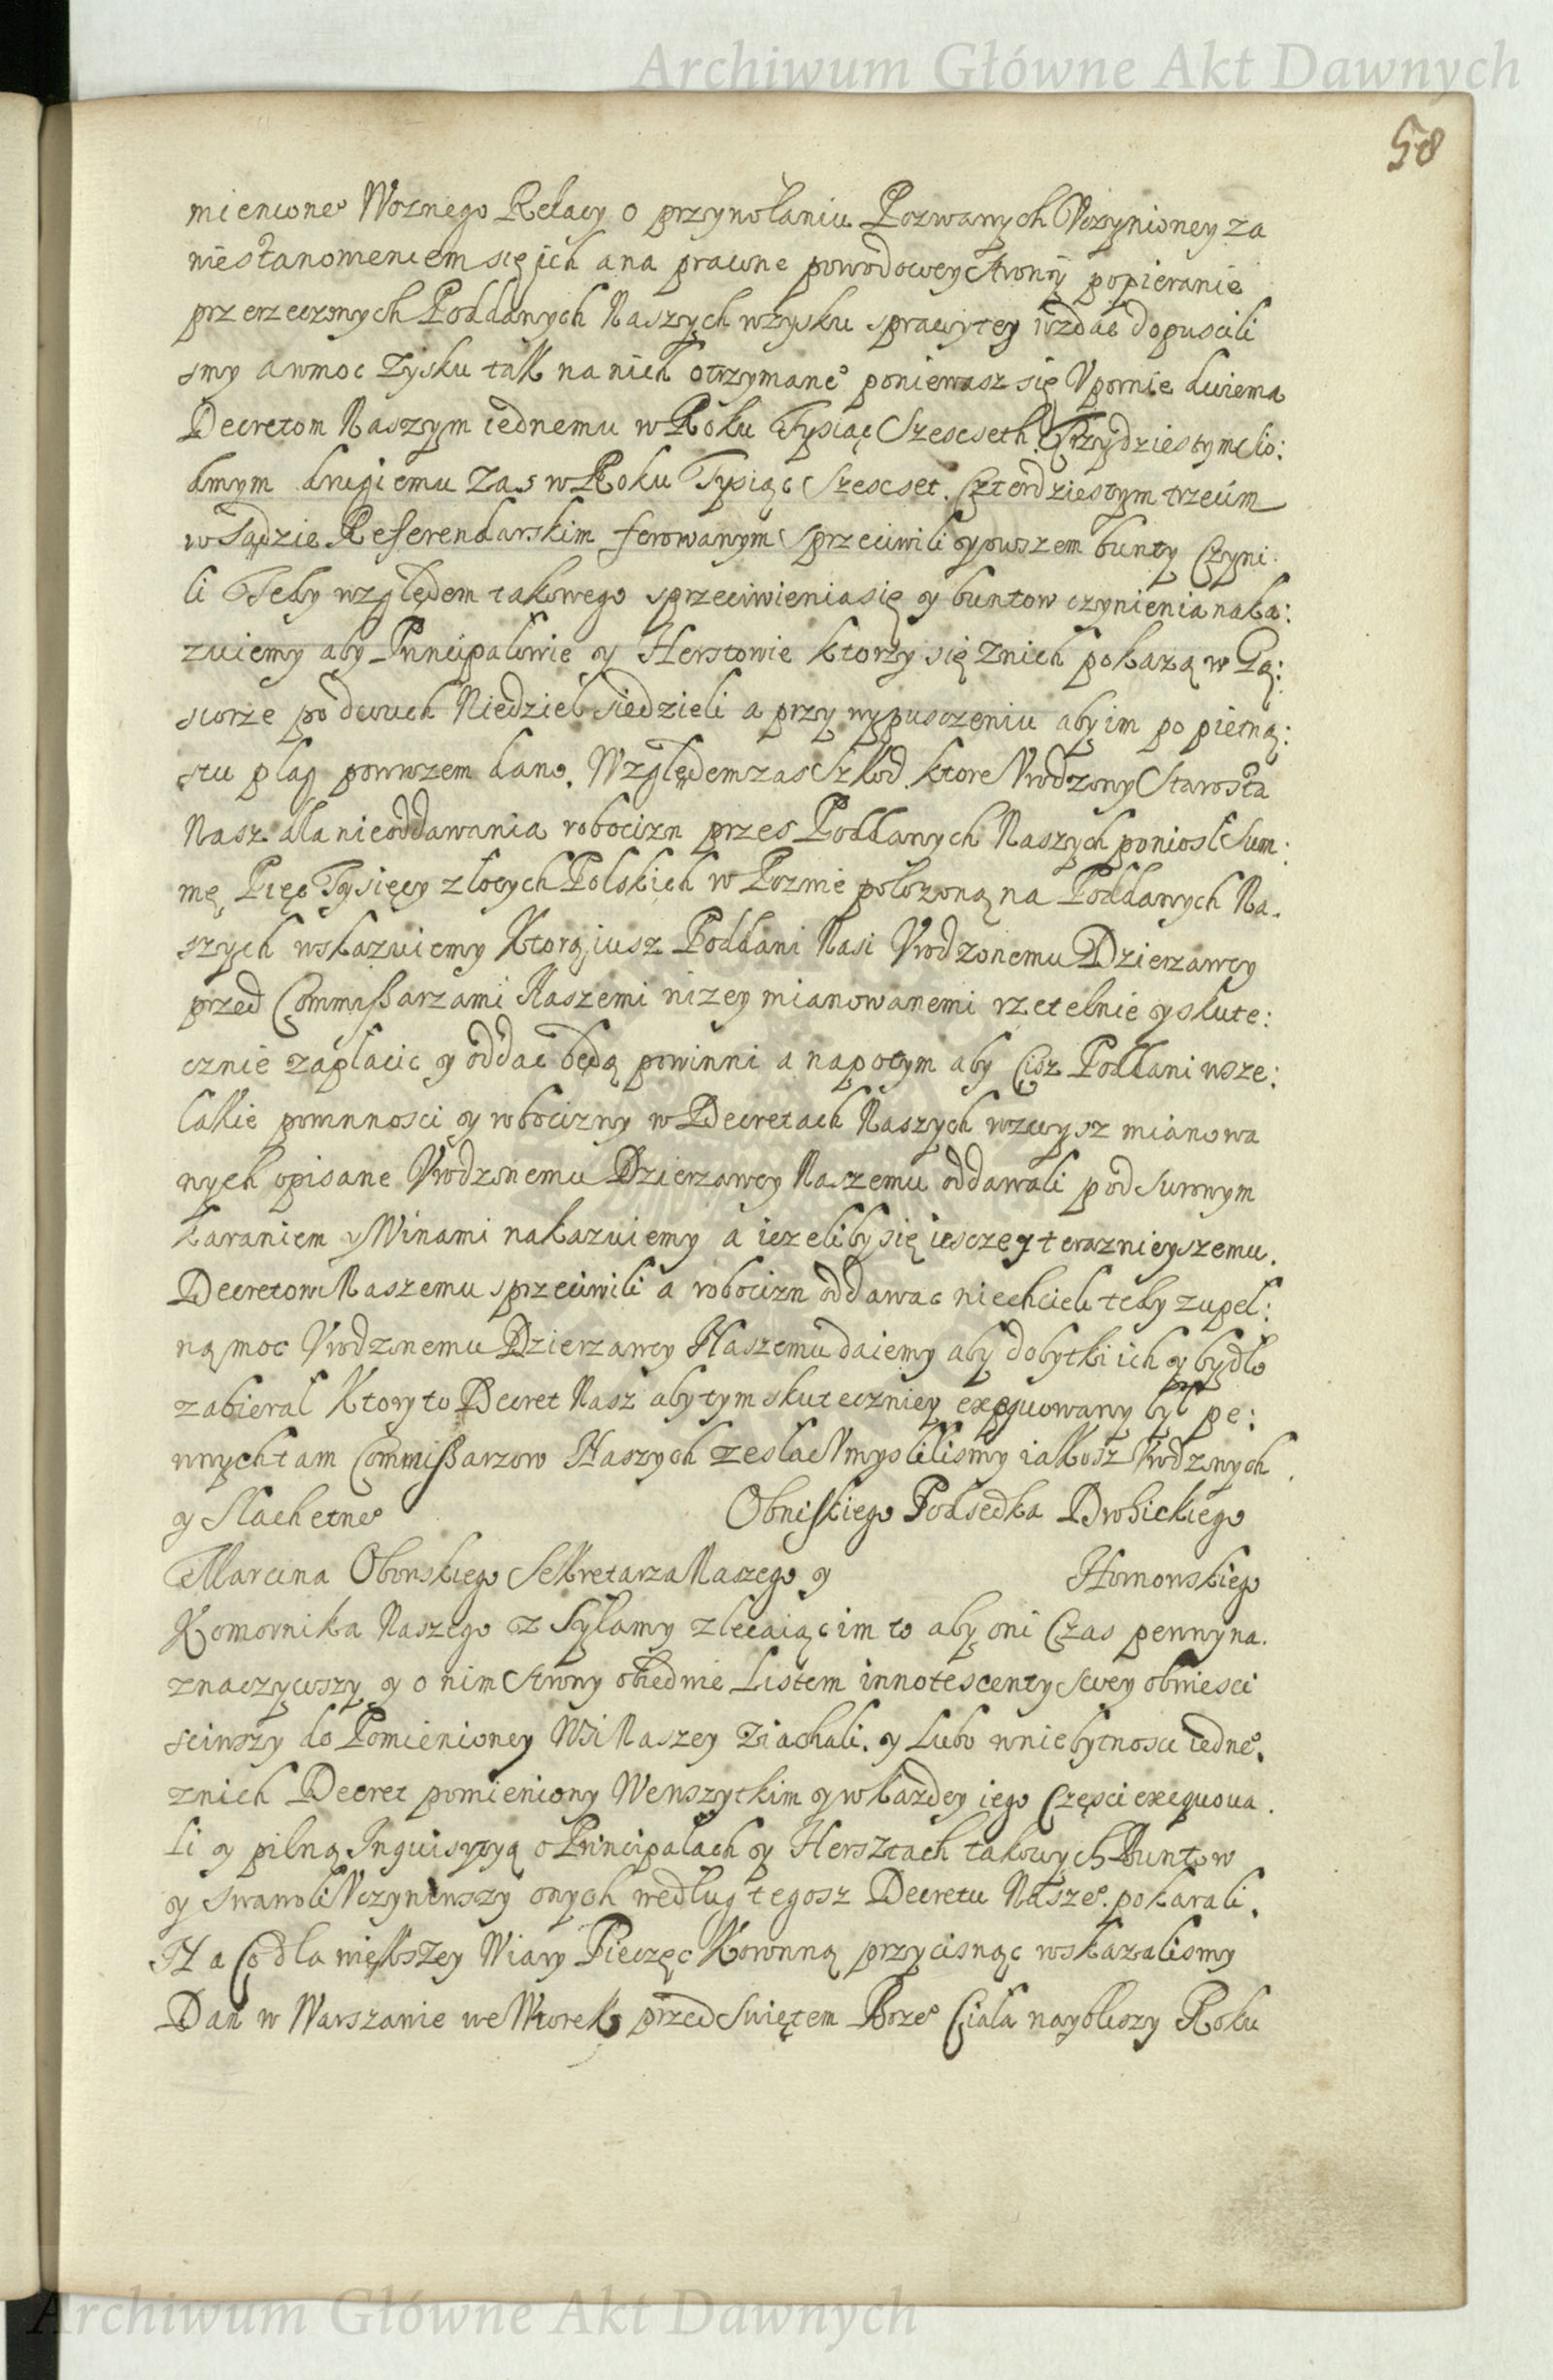 Archiwum Główne Akt Dawnych
58
mienione° Woznego Relacy o przywołaniu Pozwanych Vczynioney za
niestanowieniem się ich a na prawne powodowey strony popieranie
przerzeczonych Poddanych Naszych w zysku sprawy tey wzdac dopuscili
smy a w moc zysku tak na nich otrzymane° poniewasz się Vpornie dwiema
Decretom Naszym iednemu w Roku Tysiąc Szescseth Trzydziestym sio:
dmym drugiemu zas w Roku Tysiąc Szescset Czterdziestym trzecim
w Sądzie Referendarskim ferowanym sprzeciwili y owszem bunty czyni:
li Tedy względem takowego sprzeciwienia się y buntow czynienia naka:
zuiemy aby Principalowie y Hersztowie ktorzy się z nich pokazą w Gą:
siorze po dwuch Niedziel siedzieli a przy wypuszczeniu aby im po pietna:
stu plag powrozem dano. Względem zas Szkod ktore Vrodzony Starosta
Nasz dla nieoddawania robocizn przes Poddanych Naszych poniosł Sum:
mę Pięc Tysięcy złotych Polskich w Pozwie połozoną na Poddanych Na.
szych wskazuiemy Ktorą iusz Poddani Nasi Vrodzonemu Dzierzawcy
przed Commißarzami Naszemi nizey mianowanemi rzetelnie y skute:
cznie zapłacic y oddac będą powinni a napotym aby cisz Poddani wsze:
lakie powinnosci y robocizny w Decretach Naszych wzwysz mianowa
nych opisane Vrodzonemu Dzierzawcy Naszemu oddawali pod surowym
karaniem y Winami nakazuiemy a iezeliby się iescze y teraznieyszemu.
Decretowi Naszemu sprzeciwili a robocizn oddawac niechcieli tedy zupeł:
ną moc Vrodzonemu Dzierzawcy Naszemu daiemy aby dobytki ich y bydło
zabierał Ktory to Decret Nasz aby tym skuteczniey exequowany był pe:
wnych tam Commißarzow Naszych zesłac Vmyslilismy iakosz Vrodzonych
y Slachetne° Obniskiego Podsedka Drohickiego
Marcina Oborskiego Sekretarza Naszego y Hornowskiego
Komornika Naszego zsyłamy zlecaiąc im to aby oni Czas pewny na.
znaczywszy y o nim strony obiedwie Listem innotescenty swey obwiesci
sciwszy do Pomienioney Wsi Naszey ziachali. y lubo w niebytnosci iedne°.
z nich Decret pomieniony We wszytkim y w kazdey iego Częsci exequowa.
li y pilną Inquisycyą o Principalach y Hersztach takowych Buntow
y swawoli Vczyniwszy onych według tegosz Decretu Nasze°. pokarali.
Na Co dla większey Wiary Pieczęc Koronną przycisnąc wskazalismy
Dan w Warszawie we Wtorek przed Swiętem Boze° Ciała naybliszy Roku
Archiwum Główne Akt Dawnych